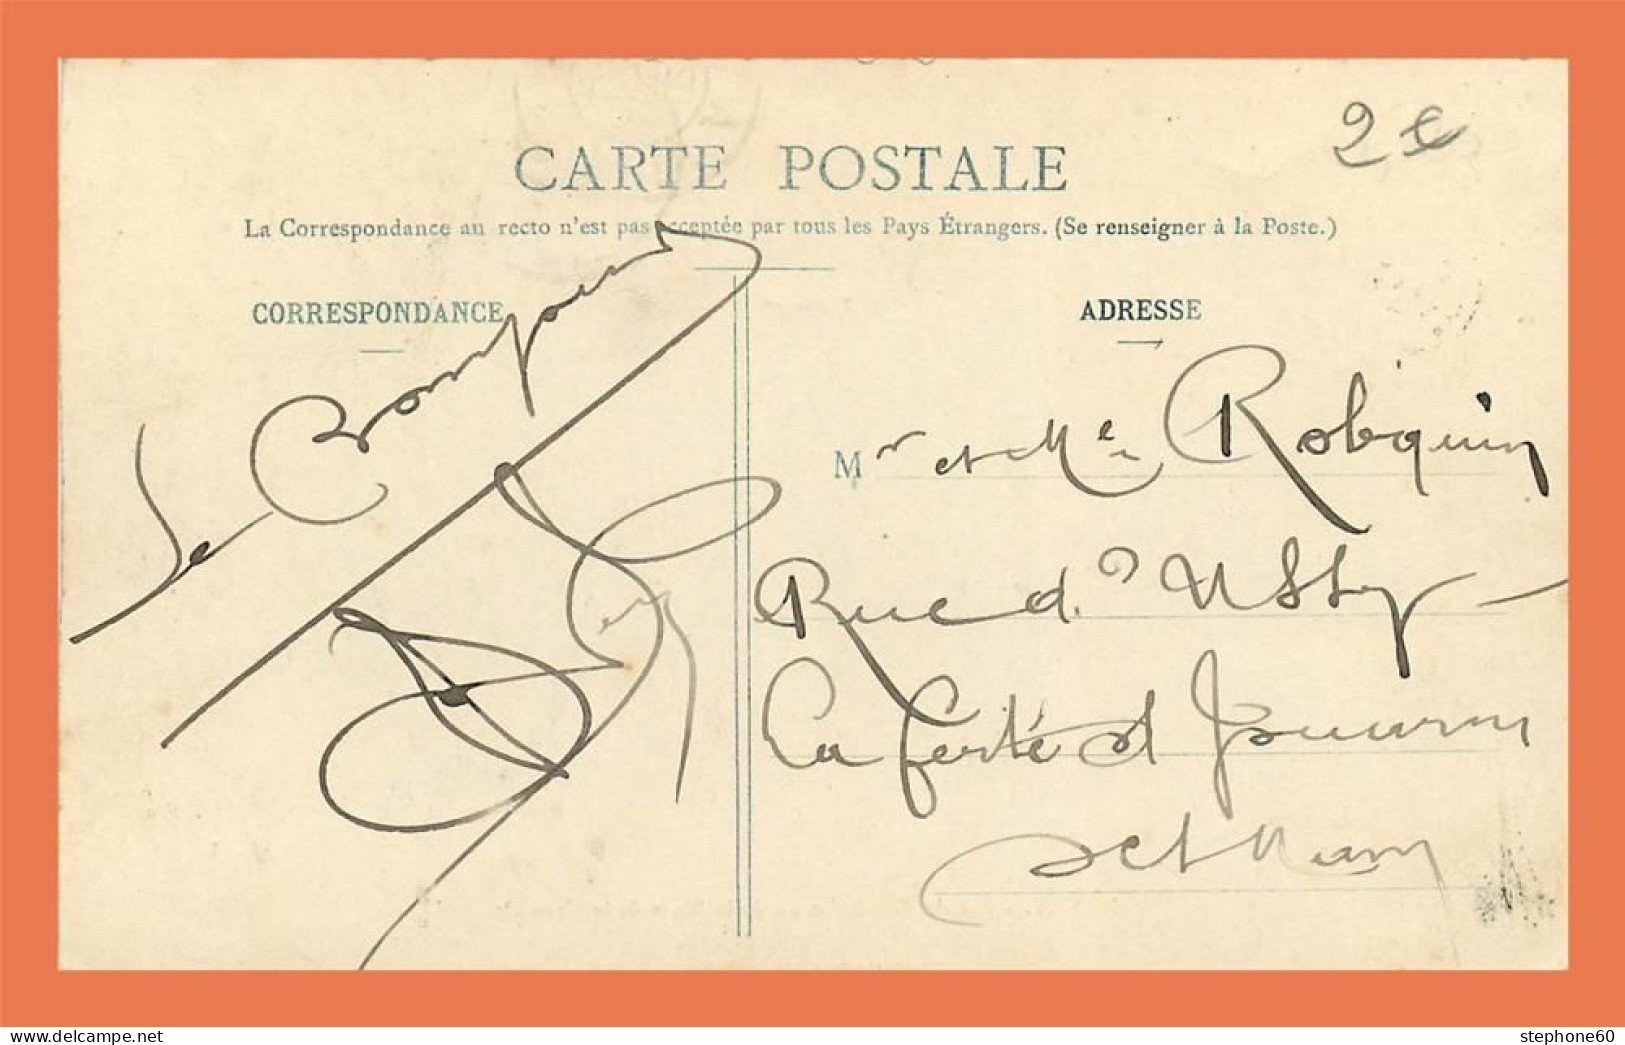 2 €
CARTE POSTALE
La Correspondance au recto n'est pas acceptée par tous les Pays Étrangers. (Se renseigner à la Poste.)
CORRESPONDANCE
ADRESSE
Mr et Me Robquin
Rue d'Ussy
La ferté s/ Jouarre
Set Marn
www.delcampe.net
stephone60